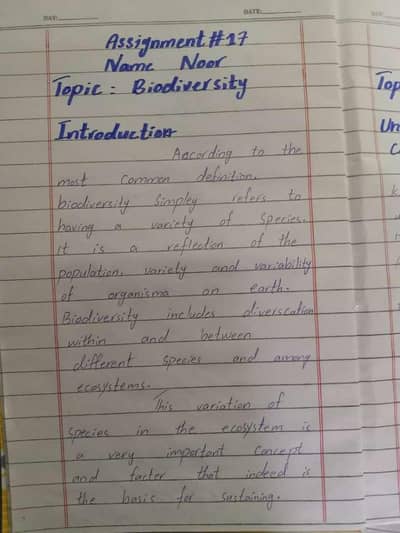 DAY:
DATE:
DAY:
Assignment #17
Name Noor
Topic : Biodiversity
Introduction
According to the
most Common definition,
biodiversity simpley refers to
having a variety of Species.
it is a reflection of the
population, variety and variability
of organisma on earth.
Biodiversity includes diverscation
within and between
different Species and among
ecosystems.
This variation of
Species in the ecosystem is
a very important Concept
and facter that indeed is
the basis for Sustaining.
Top
Un
C